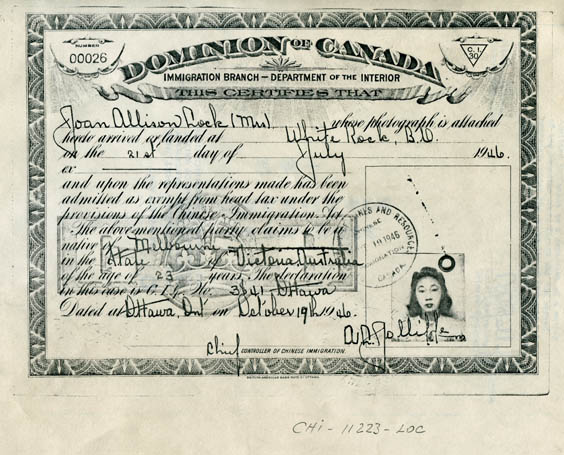 NUMBER
00026
C.I.
30
DOMINION OF CANADA
IMMIGRATION BRANCH – DEPARTMENT OF THE INTERIOR
THIS CERTIFIES THAT
Joan Allison Lock (Mrs) whose photograph is attached
hereto arrived or landed at White Rock, B.C.
on the 21st day of July 1946.
ex
and upon the representations made has been
admitted as exempt from head tax under the
provisions of the Chinese Immigration Act
The above mentioned party claims to be a
native of Melbourne
in the State of Victoria Australia
of the age of 23 years. The declaration
in this case is C.I. No. 3641 Ottawa
Dated at Ottawa, Ont on October 19th 1946.
MINES AND RESOURCES
CHINESE
1946
IMMIGRATION
CANADA
Chief CONTROLLER OF CHINESE IMMIGRATION.
CHI-11223-LOC